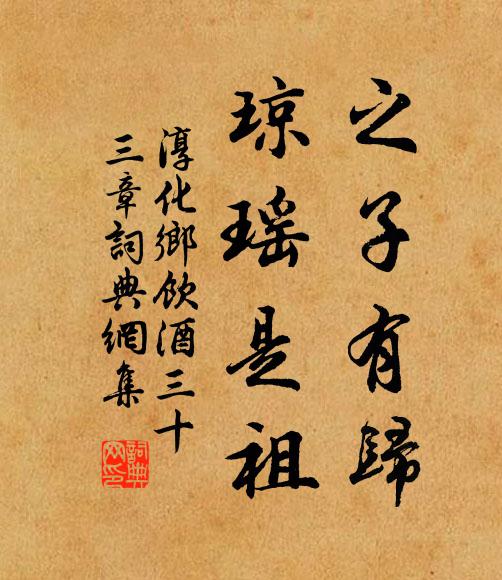 之子有歸
琼瑶是祖
淳化鄉飲酒三十
三章詞典網集